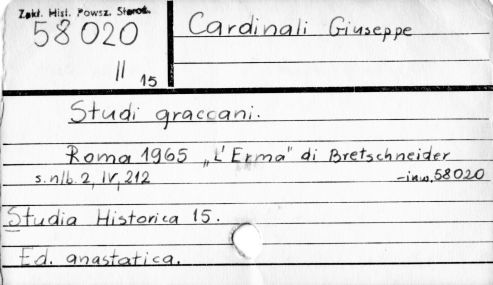 Zakł. Hist. Powsz. Staroż.
58020
II 15
Cardinali Giuseppe
Studi graccani.
Roma 1965 „L'Erma" di Bretschneider
s. nlb. 2, IV, 212 -inw. 58020
Studia Historica 15.
Ed. anastatica.